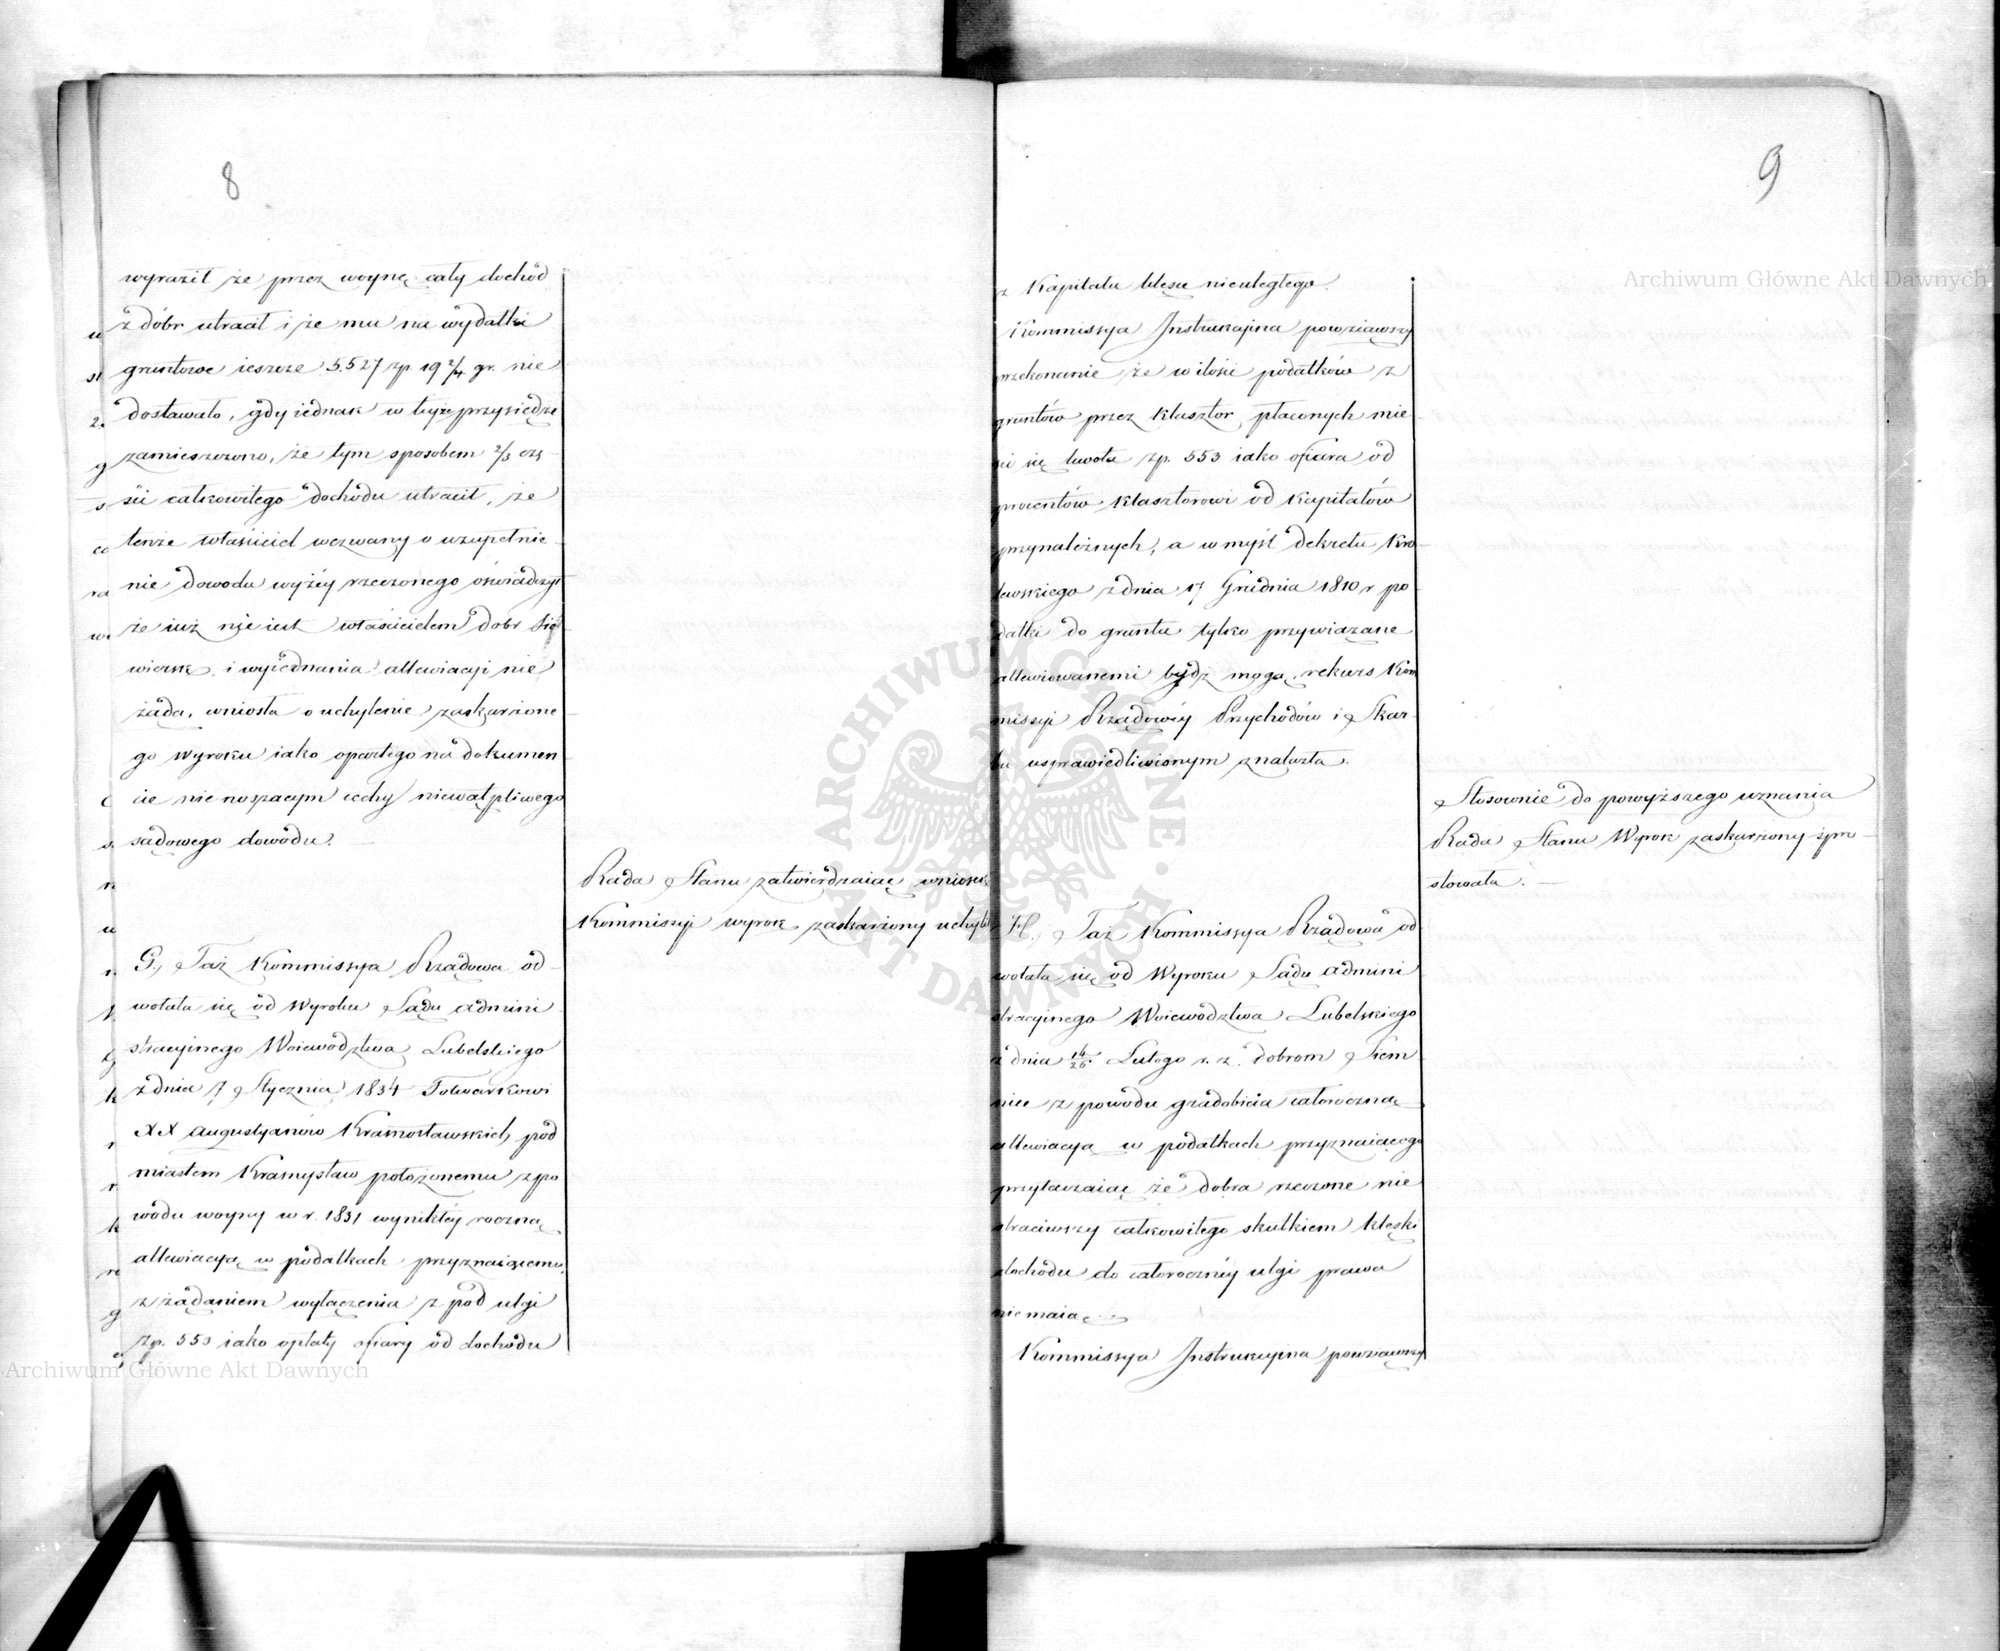 8
wyraził że przez woynę cały dochód
z dóbr utracił i że mu na wydatki
gruntowe ieszcze 5.527 zp. 19 2/4 gr. nie
dostawało, gdy iednak w teyże przysiędze
zamieszczono, że tym sposobem 2/3 czę-
ści całkowitego dochodu utracił, że
tenże właściciel wezwany o uzupełnie-
nie dowodu wyżéy rzeczonego oświadczył
że iuż nie iest właścicielem dobr
i wyiednania allewiacyi nie
żąda, wniosła o uchylenie zaskarżone-
go wyroku iako opartego na dokumen-
cie nie noszącym cechy niewątpliwego
sądowego dowodu.
Rada Stanu zatwierdzaiąc wniosek
Kommissyi wyrok zaskarżony uchyliła
G., Taż Kommissya Rządowa od-
wołała się od Wyroku Sądu Admini-
stracyinego Województwa Lubelskiego
z dnia 7 Stycznia 1834 Folwarkowi
XX Augustyanów Krasnostawskich pod
miastem Krasnystaw położonemu z po
wodu woyny w r. 1831 wynikłéy roczną
allewiacyą w podatkach przyznaiącemu,
z żądaniem wyłączenia z pod ulgi
zp. 553 iako opłaty ofiary od dochodu
9
z Kapitału klęsce nieuległego.
Kommissya Instrukcyina powziąwszy
przekonanie że w ilości podatków z
gruntów przez klasztor płaconych mie
ści się kwota zp. 553 iako ofiara od
procentów klasztorowi od kapitałów
przynależnych, a w myśl dekretu Kró-
lewskiego z dnia 17 Grudnia 1810 r po
datki do gruntu tylko przywiązane
allewiowanemi bydź mogą, rekurs Kom
missyi Rządowéy Przychodów i Skar-
bu usprawiedliwionym znalazła.
Stosownie do powyższego uznania
Rada Stanu Wyrok zaskarżony spro-
stowała.
H., Taż Kommissya Rządowa od
wołała się od Wyroku Sądu Admini
stracyinego Województwa Lubelskiego
z dnia 14/26 Lutego r. z. dobrom Siem
nice z powodu gradobicia całoroczną
allewiacyą w podatkach przyznaiącego
przytaczaiąc że dobra rzeczone nie
straciwszy całkowitego skutkiem klęski
dochodu do całorocznéy ulgi prawa
nie maią.
Kommissya Instrukcyina powziąwszy
Archiwum Główne Akt Dawnych
Archiwum Główne Akt Dawnych
ARCHIWUM GŁÓWNE AKT DAWNYCH